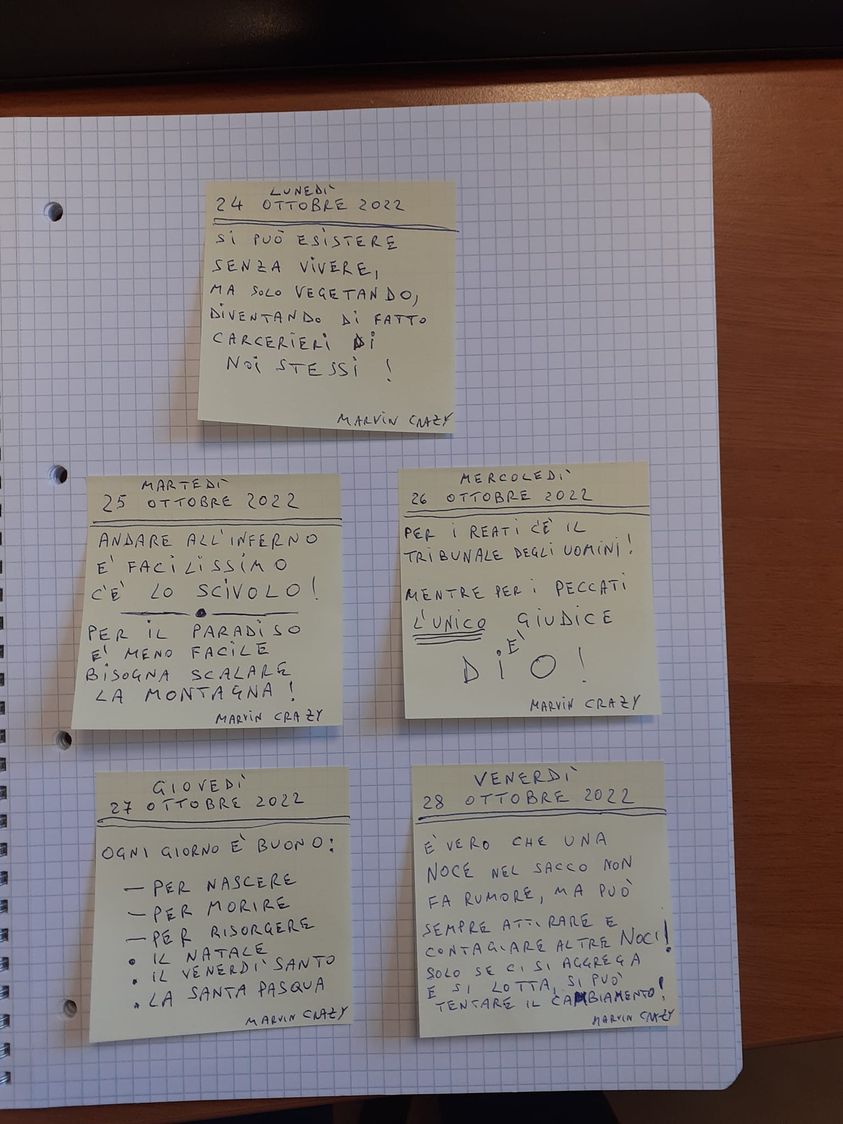 LUNEDÌ
24 OTTOBRE 2022
SI PUÒ ESISTERE
SENZA VIVERE,
MA SOLO VEGETANDO,
DIVENTANDO DI FATTO
CARCERIERI DI
NOI STESSI !
MARVIN CRAZY
MARTEDÌ
25 OTTOBRE 2022
ANDARE ALL'INFERNO
E' FACILISSIMO
C'E' LO SCIVOLO !
PER IL PARADISO
E' MENO FACILE
BISOGNA SCALARE
LA MONTAGNA !
MARVIN CRAZY
MERCOLEDÌ
26 OTTOBRE 2022
PER I REATI C'È IL
TRIBUNALE DEGLI UOMINI !
MENTRE PER I PECCATI
L'UNICO GIUDICE
È
DIO !
MARVIN CRAZY
GIOVEDÌ
27 OTTOBRE 2022
OGNI GIORNO È BUONO :
— PER NASCERE
— PER MORIRE
— PER RISORGERE
• IL NATALE
• IL VENERDI' SANTO
• LA SANTA PASQUA
MARVIN CRAZY
VENERDÌ
28 OTTOBRE 2022
È VERO CHE UNA
NOCE NEL SACCO NON
FA RUMORE, MA PUÒ
SEMPRE ATTIRARE E
CONTAGIARE ALTRE NOCI !
SOLO SE CI SI AGGREGA
E SI LOTTA, SI PUO'
TENTARE IL CAMBIAMENTO !
MARVIN CRAZY